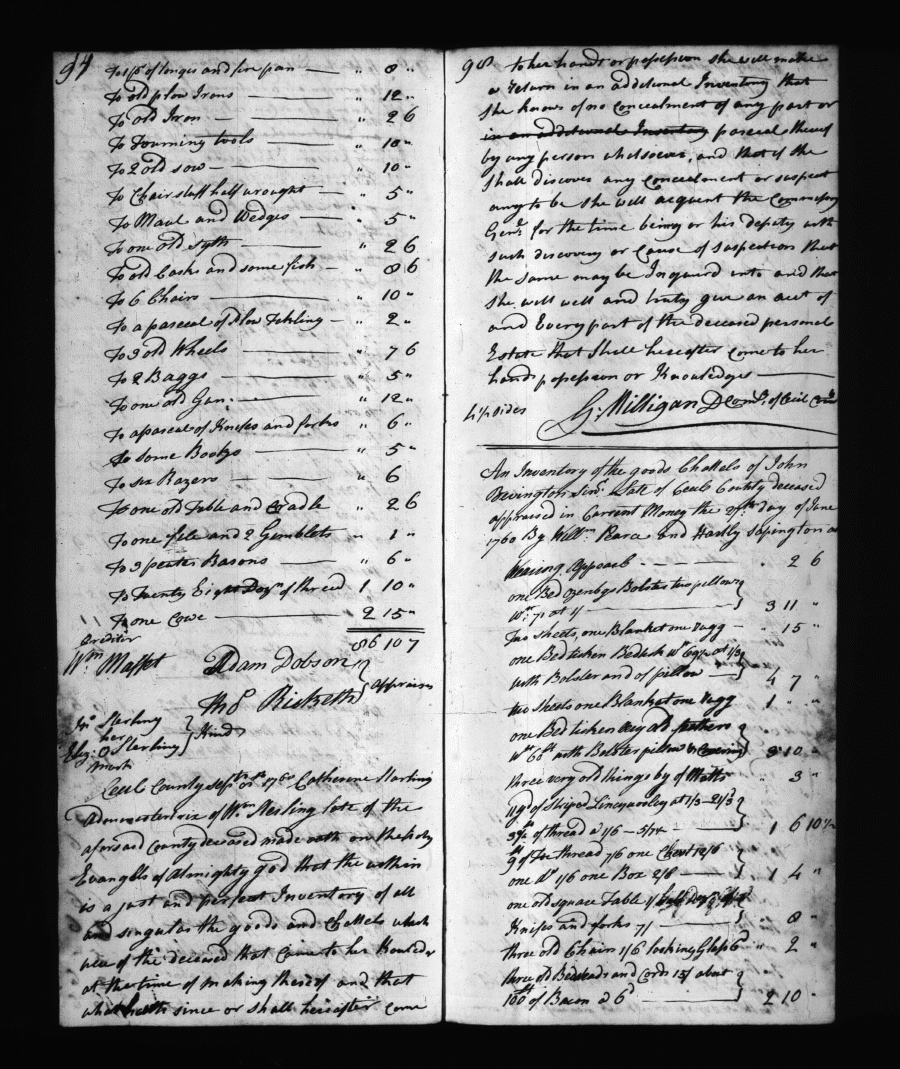 94
To 1 pr of tonges and fire pan — " 8 "
To old plow Irons — " 12 "
To old Iron — " 2 6
To Tourning tools " 10 "
To 2 old sow — " 10 "
To Chair stuff half wrought — " 5 "
To Maul and Wedges — " 5 "
To one old syth — " 2 6
To old Casks and some fish — " 8 6
To 6 Chairs — " 10 "
To a parceal of Plow Tekling — " 2 "
To 3 old Wheels — " 7 6
To 2 Baggs — " 5 "
To one old Gun — " 12 "
To a parceal of Knifes and forks " 6 "
To some Books — " 5 "
To six Razers — " 6
To one old Table and Cradle " 2 6
To one file and 2 Gimblets " 1 "
To 3 peuter Basons — " 6 "
To Twenty Eight Days of thread 1 10 "
To one Cowe — 2 15 "
86 10 7
Creditor
Wm Maffet Adam Dobson
Thos Ricketts } Appraisers
Sterling
her } Kind
Eliz: O Sterling
mark
Cecil County Sept 1760 Catherine Starling
Administratrix of Wm Sterling late of the
aforsaid County deceased made oath on the holy
Evangels of Almighty god that the within
is a just and perfect Inventory of all
and singular the goods and Chattels which
were of the deceased that Came to her knowledr
at the time of making thereof and that
what hath since or shall hereafter come
98 to her hands or possession she will make
a return in an additional Inventory that
she knows of no Concealment of any part or
in an additional Inventory parceal thereof
by any person whatsoever, and that if she
shall discover any Concealment or suspect
any to be she will acquent the Commissary
Genl. for the time being or his deputy with
such discovery or Cause of suspection that
the same may be Inquired into and that
she will well and truly give an acct of
and Every part of the deceased personal
Estate that shall hereafter come to her
hands possession or Knowledges —
G: Milligan D Comsy. of Cecil County
An Inventory of the goods Chattels of John
Bavington Senr. Late of Cecil County deceased
appraised in Current Money the day of June
1760 By Willm. Pearce and Hartly Sapington as
Wearing Apparel - - - - " 2 6
one Bed Ozenbgs Bolster two pillows
Wt. 71 at 1/ — } 3 11 "
Two sheets, one Blanket one Rugg — " 15 "
one Bed ticken Bedtick wt 69 at 1/3
with Bolster and pillow — } 4 7 "
two sheets one Blanket one Rugg 1 " "
one Bed ticken very old feathers
wt 60 with Bolster pillow & Covering } 3 10 "
three very old things by of " 3 "
11 yds of striped Lincywoolsey at 1/3
3 of thread a 1/6 — } 1 6 10½
9 of thread 7/6 one Chest 12/6
one Do 1/6 one Box 2/6 — } 1 4 "
one old square Table 1/
Knifes and forks 7/ — } " 8 "
three old Chairs 1/6 looking Glass 6d " 2 "
three old Bedsteads and Cords 15/ about
100 of Bacon a 6d — } 2 10 "